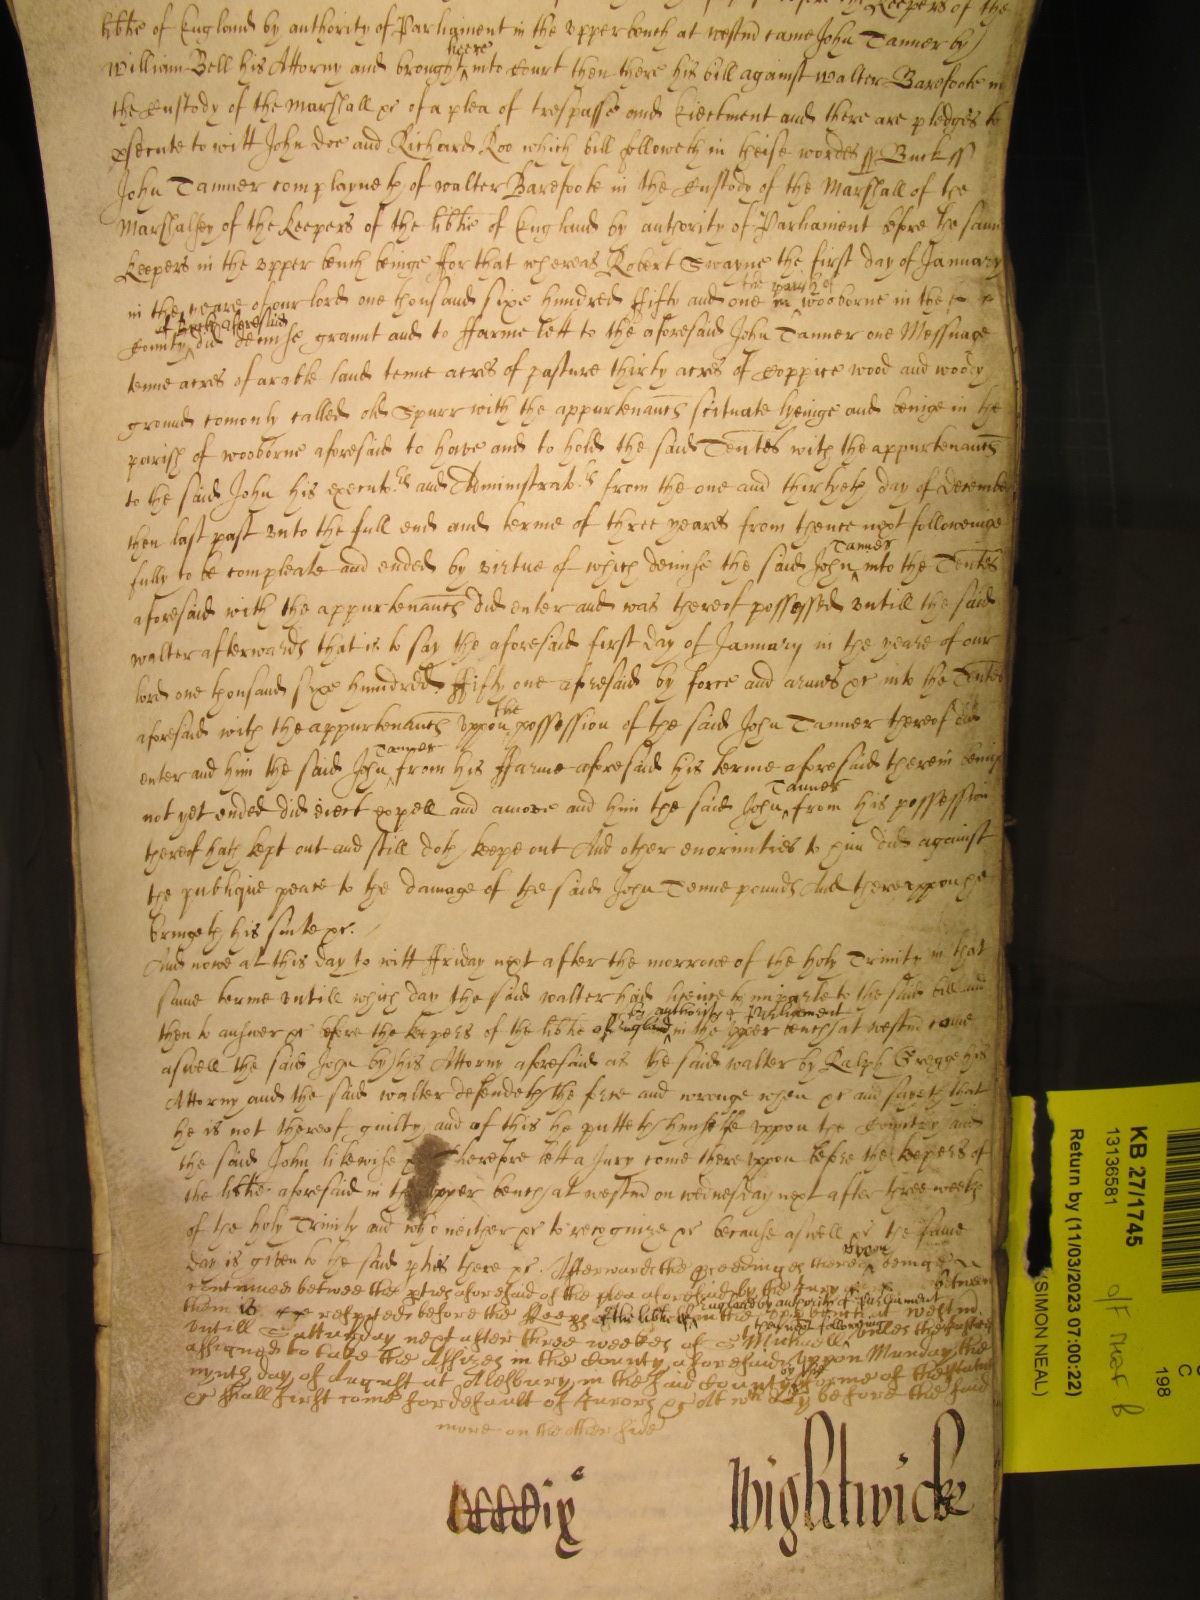 Keepers of the
libtie of England by authority of Parliament in the vpper bench at westmr came John Tanner by
heere
William Bell his Attorny and brought into Court then there his bill against Walter Barefoote in
the Custody of the Marshall &c of a plea of trespasse and Eiectment and there are pledges to
psecute to witt John Doe and Richard Roo which bill followeth in theise wordes ss Buck ss
John Tanner complayneth of Walter Barefoote in the Custody of the Marshall of the
Marshalsey of the Keepers of the libtie of England by authority of Parliament before the same
Keepers in the vpper bench beinge ffor that whereas Robert Swayne the first day of January
the parish of
in the yeare of our lord one thousand sixe hundred fifty and one in wooborne in the
of Buck aforesaid
County did demise graunt and to ffarme lett to the aforesaid John Tanner one Messuage
tenne acres of arable land tenne acres of pasture thirty acres of Coppice wood and woody
ground comonly called old Spurr with the appurtenancs scituate lyeinge and beinge in the
parish of wooborne aforesaid to have and to hold the said Tentes with the appurtenancs
to the said John his executors and Administrators from the one and thirtyeth day of December
then last past vnto the full end and terme of three yeares from thence next followeinge
Tanner
fully to be compleate and ended by virtue of which demise the said John into the Tentes
aforesaid with the appurtenancs did enter and was thereof possessed vntill the said
walter afterwards that is to say the aforesaid first day of January in the yeare of our
lord one thousand sixe hundred ffifty one aforesaid by force and armes &c into the Tentes
the
aforesaid with the appurtenancs vppon possession of the said John Tanner thereof did
Tanner
enter and him the said John from his ffarme aforesaid his terme aforesaid therein beinge
Tanner
not yet ended did eiect expell and amove and him the said John from his possession
thereof hath kept out and still doth keepe out And other enormities to him did against
the publique peace to the damage of the said John Tenne pounds And therevppon he
bringeth his suite &c.
And nowe at this day to witt ffriday next after the morrowe of the holy Trinity in that
same terme vntill which day the said walter had licence to imparle to the said bill and
by authority of Parliament
then to answer &c before the keepers of the libtie of England in the vpper bench at westmr came
aswell the said John by his Attorny aforesaid as the said walter by Ralph Gregge his
Attorny and the said walter defendeth the force and wronge when &c and sayeth that
he is not thereof guilty and of this he putteth himselfe vppon the Country and
the said John likewise &c Therefore lett a Jury come therevppon before the keepers of
the libtie aforesaid in the vpper bench at westmr on wednesday next after three weeks
of the holy Trinity and who neither &c to recognize &c because aswell &c the same
vpon
day is given to the said pties there &c. Afterwards the proceedinges there beinge
continued betwee the pties aforesaid of the plea aforesaid by the Jury between
England by authority of Parliament
them is respyted before the Keeps of the libtie of in the westmr
vntill Satturday next after three weekes of St Michaell vnles
assigned to take the Assizes in the County aforesaid vpon Munday the
nynth day of August at Alesbury in the said County by the forme of the statute
&c shall first come for default of Jurors &c At wch day before the said
more on the other side
Wightwick
KB 27/1745
13136581
Return by (11/03/2023 07:00:22)
(SIMON NEAL)
198
C